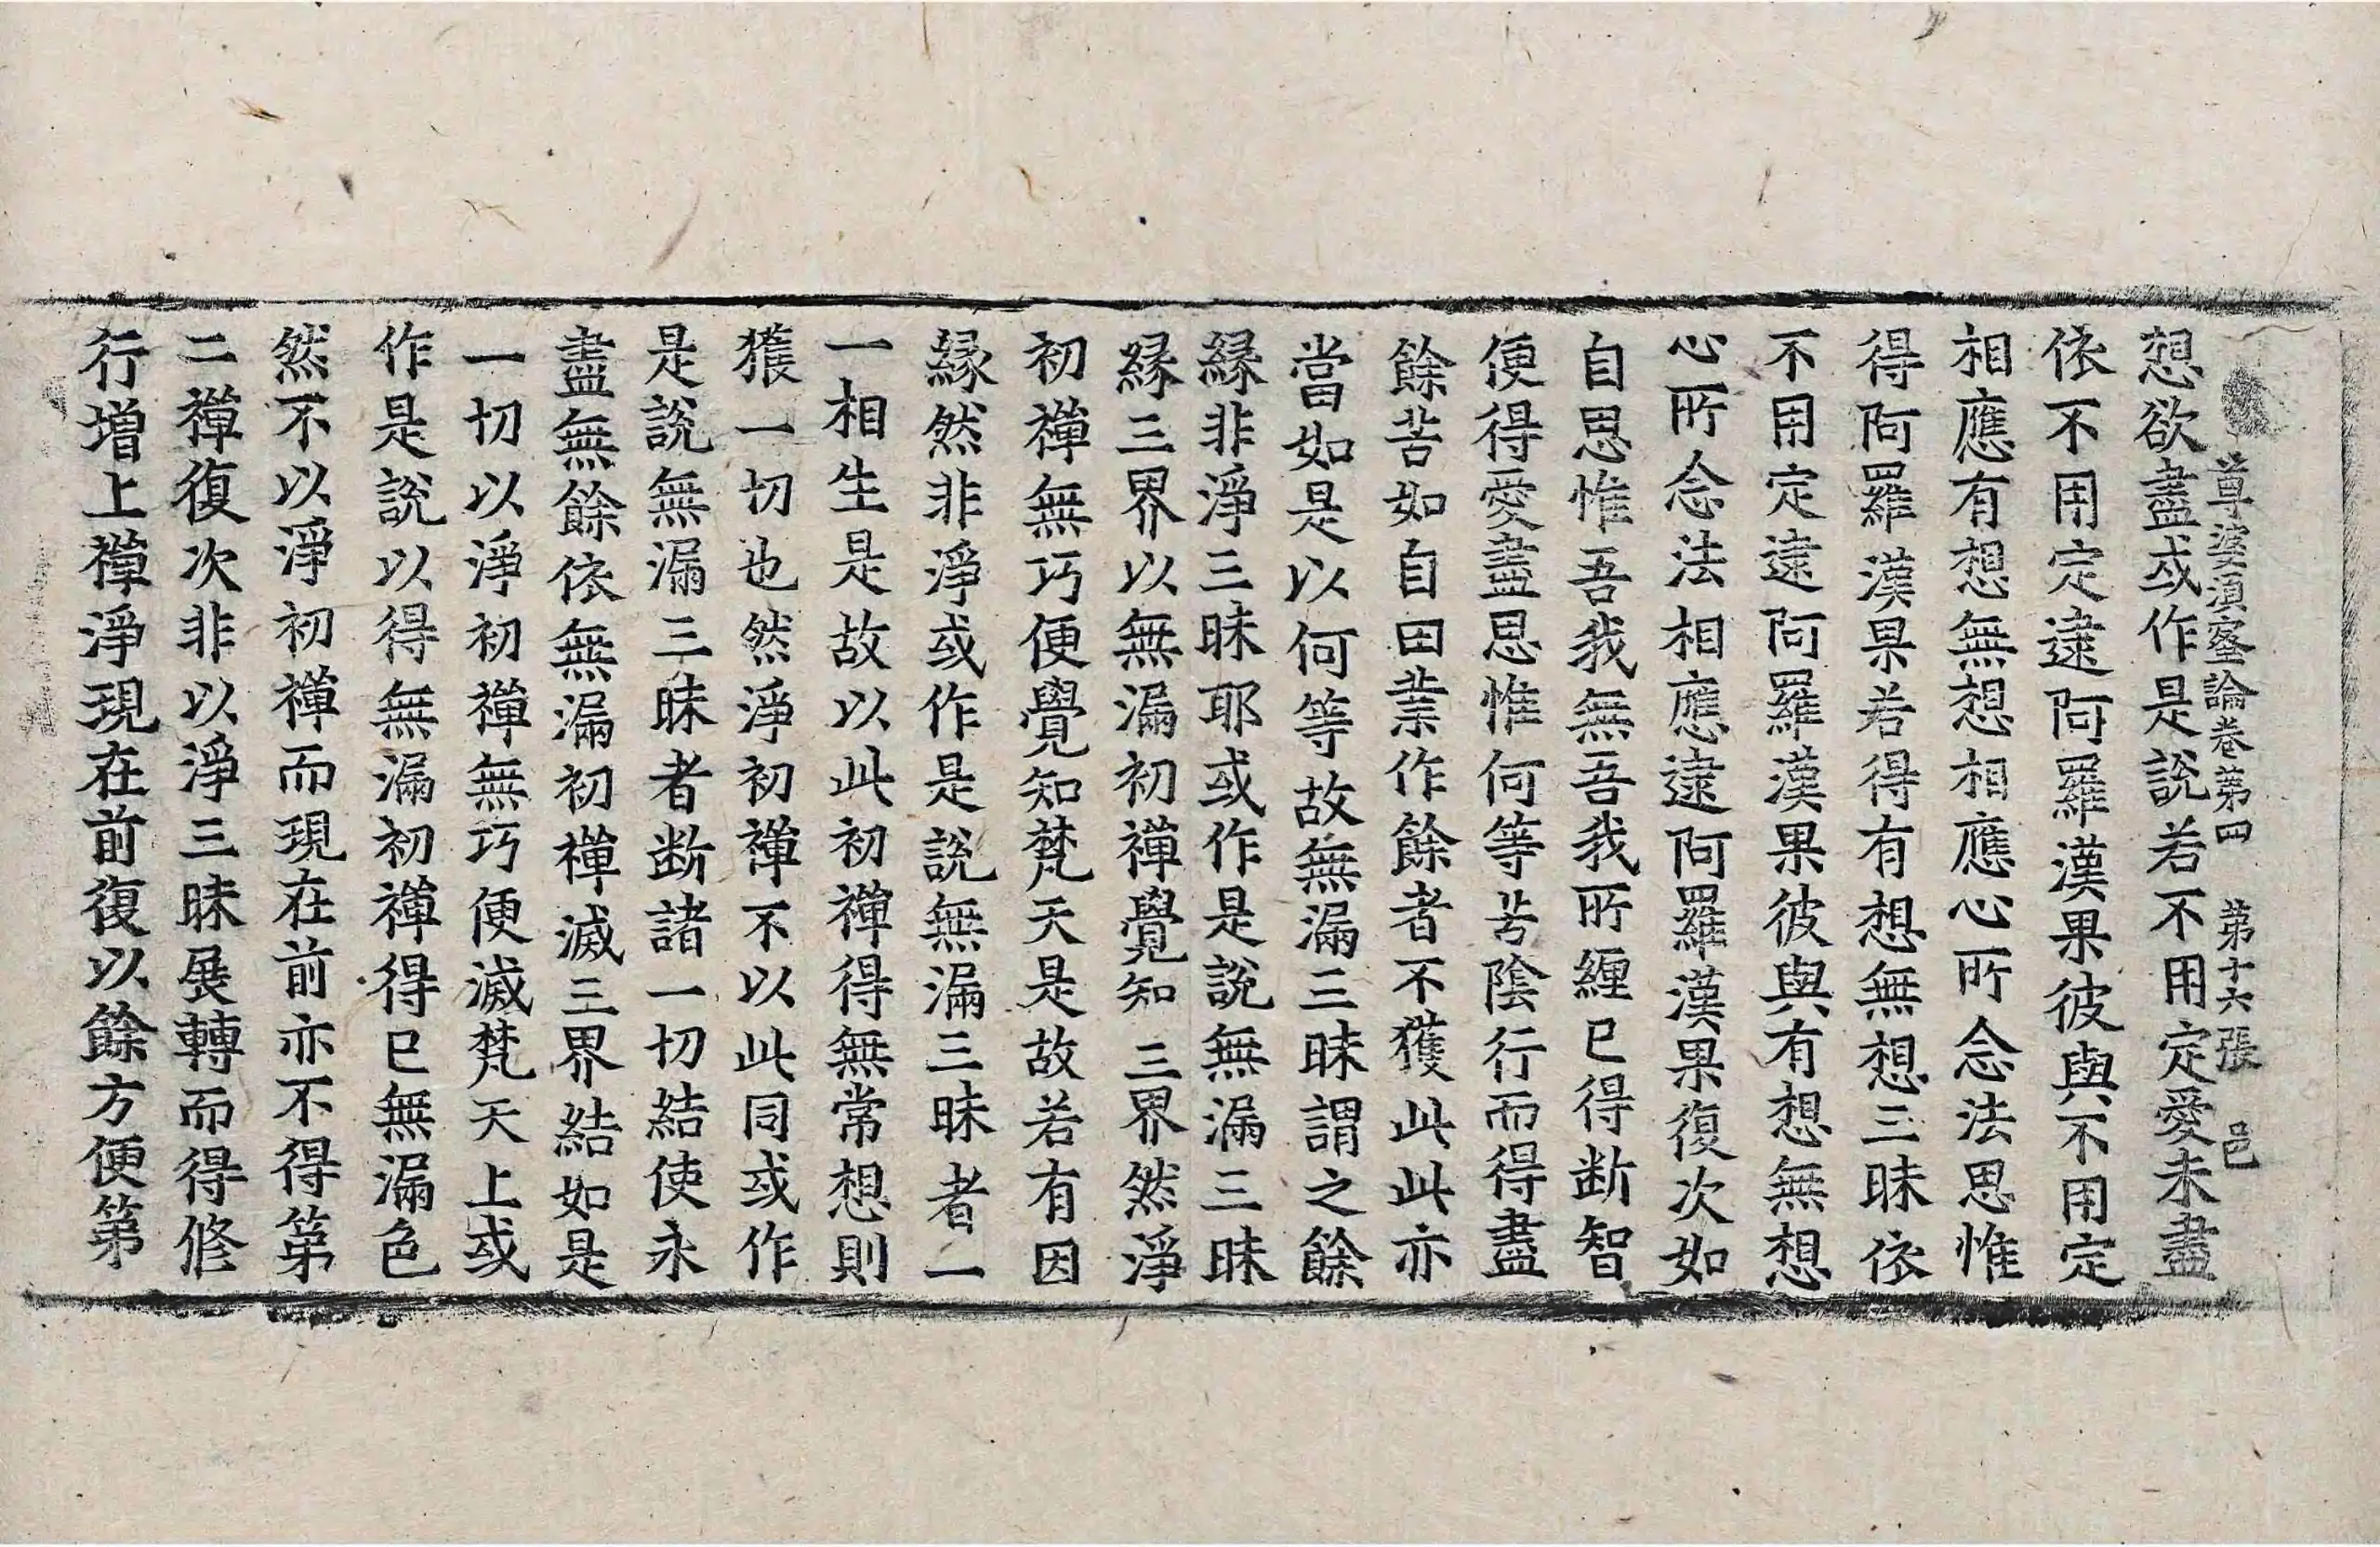 尊婆須蜜論卷第四 第十六張 邑
想欲盡或作是說若不用定愛未盡
依不用定逮阿羅漢果彼與不用定
相應有想無想相應心所念法思惟
得阿羅漢果若得有想無想三昧依
不用定逮阿羅漢果彼與有想無想
心所念法相應逮阿羅漢果復次如
自思惟吾我無吾我所纏已得断智
便得愛盡思惟何等苦陰行而得盡
餘苦如自因業作餘者不獲此此亦
當如是以何等故無漏三昧謂之餘
緣非淨三昧耶或作是說無漏三昧
緣三界以無漏初禪覺知三界然淨
初禪無巧便覺知梵天是故若有因
緣然非淨或作是說無漏三昧者一
一相生是故以此初禪得無常想則
獲一切也然淨初禪不以此同或作
是說無漏三昧者断諸一切結使永
盡無餘依無漏初禪滅三界結如是
一切以淨初禪無巧便滅梵天上或
作是說以得無漏初禪得已無漏色
然不以淨初禪而現在前亦不得第
二禪復次非以淨三昧展轉而得修
行增上禪淨現在前復以餘方便第